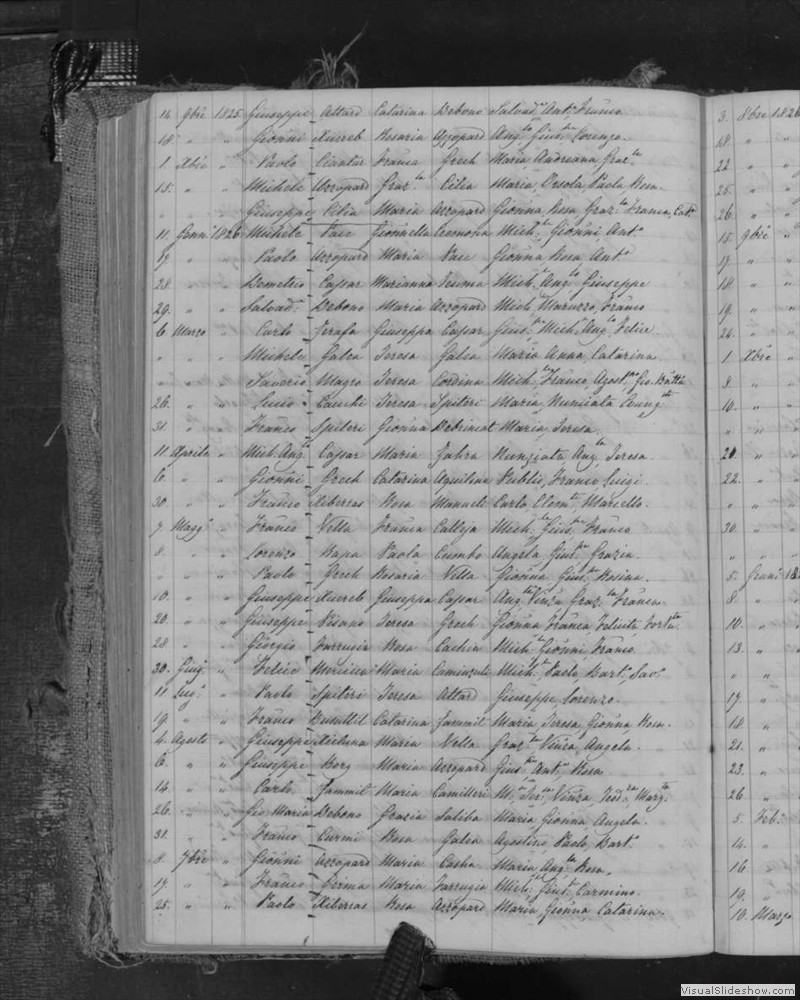 14 9bre 1825 Giuseppe Attard Catarina Debono Salvad.e Ant.a Franco
18 " " Gionni Xuereb Rosaria Azzopard Ang.lo Gius.e Lorenzo.
1. Xbre " Paolo Ciantar Franca Grech Maria, Andreana, Graz.la
15. " " Michele Azzopard Graz.la Cilia Maria, Orsola, Paola, Rosa.
" " Giuseppe Vella Maria Azzopard Gionna, Rosa, Graz.la Franca, Cat.a
11. Genn. 1826 Michele Pace Gionnella Cremona Mich.e Gionni, Ant.o
17 " " Paolo Azzopard Maria Pace Gionna Rosa Ant.a
28. " " Demetrio Caspar Marianna Mich.e Ang.lo Giuseppe
29. " " Salvad.e Debono Maria Azzopard Mich.e Maruzzo, Franco
6 Marzo " Carlo Zerafa Giuseppa Caspar Gius.e Mich.e Ang.lo Felice.
" " " Michele Galea Teresa Galea Maria Anna, Catarina
" " " Saverio Magro Teresa Cordina Mich.e Franco, Agost.no Gio. Batt.a
26. " " Cauchi Teresa Spiteri Maria, Nunciata
31. " " Franco Spiteri Gionna Debrincat Maria, Teresa.
11. Aprile " Mich. Ang.lo Caspar Maria Zahra Nunziata Ang.la Teresa.
6. " " Gionni Grech Catarina Aquilina Publio, Franco, Luigi.
30. " " Franco Xiberras Rosa Manueli Carlo, Clem.te Marcello.
7. Magg. " Franco Vella Franca Calleja Mich.e Gius.e Franco
8. " " Lorenzo Rapa Paola Cumbo Angela, Gius.a Grazia.
" " " Paolo Grech Rosaria Vella Gionna, Gius.a Rosina.
10. " " Giuseppe Xuereb Giuseppa Caspar Ang.la Vinza, Graz.la Franca.
20. " " Giuseppe Pisano Teresa Grech Gionna Franca, Felicita
28. " " Giorgio Farrugia Rosa Cachia Mich.e Gionni, Franco.
30. Giug. " Felice Maria Mich.e Paolo, Bart.o Sav.o
11. Lug. " Paolo Spiteri Teresa Attard Giuseppe, Lorenzo.
19. " " Franco Busuttil Catarina Zammit Maria, Teresa, Gionna, Rosa.
4. Agosto " Giuseppe Maria Vella Graz.la Vinza, Angela.
6. " " Giuseppe Borg Maria Azzopard Gius.a Ant.a Rosa
14. " " Carlo Zammit Maria Camilleri M.a Ter.a Vinza, Marg.ta
26. " " Gio Maria Debono Grazia Saliba Maria Gionna Angela.
31. " " Franco Curmi Rosa Galea Agostino, Paolo, Bart.o
8. 7bre " Gionni Azzopard Maria Casha Maria, Ang.la Rosa.
17. " " Franco Grima Maria Farrugia Mich.e Gius.e Carmino.
25. " " Paolo Xiberras Rosa Azzopard Maria, Gionna, Catarina.
3. 8bre 1826
18. "
22 "
25. "
26. "
15. 9bre "
17 "
18 "
19. "
26. "
1 Xbre "
8. "
10. "
" "
20. "
22. "
" "
30. "
" "
5. Genn. 18
8. "
10. "
13. "
" "
17. "
18 "
21. "
23. "
26 "
5. Feb. "
14. "
16. "
19. "
10. Marzo
VisualSlideshow.com